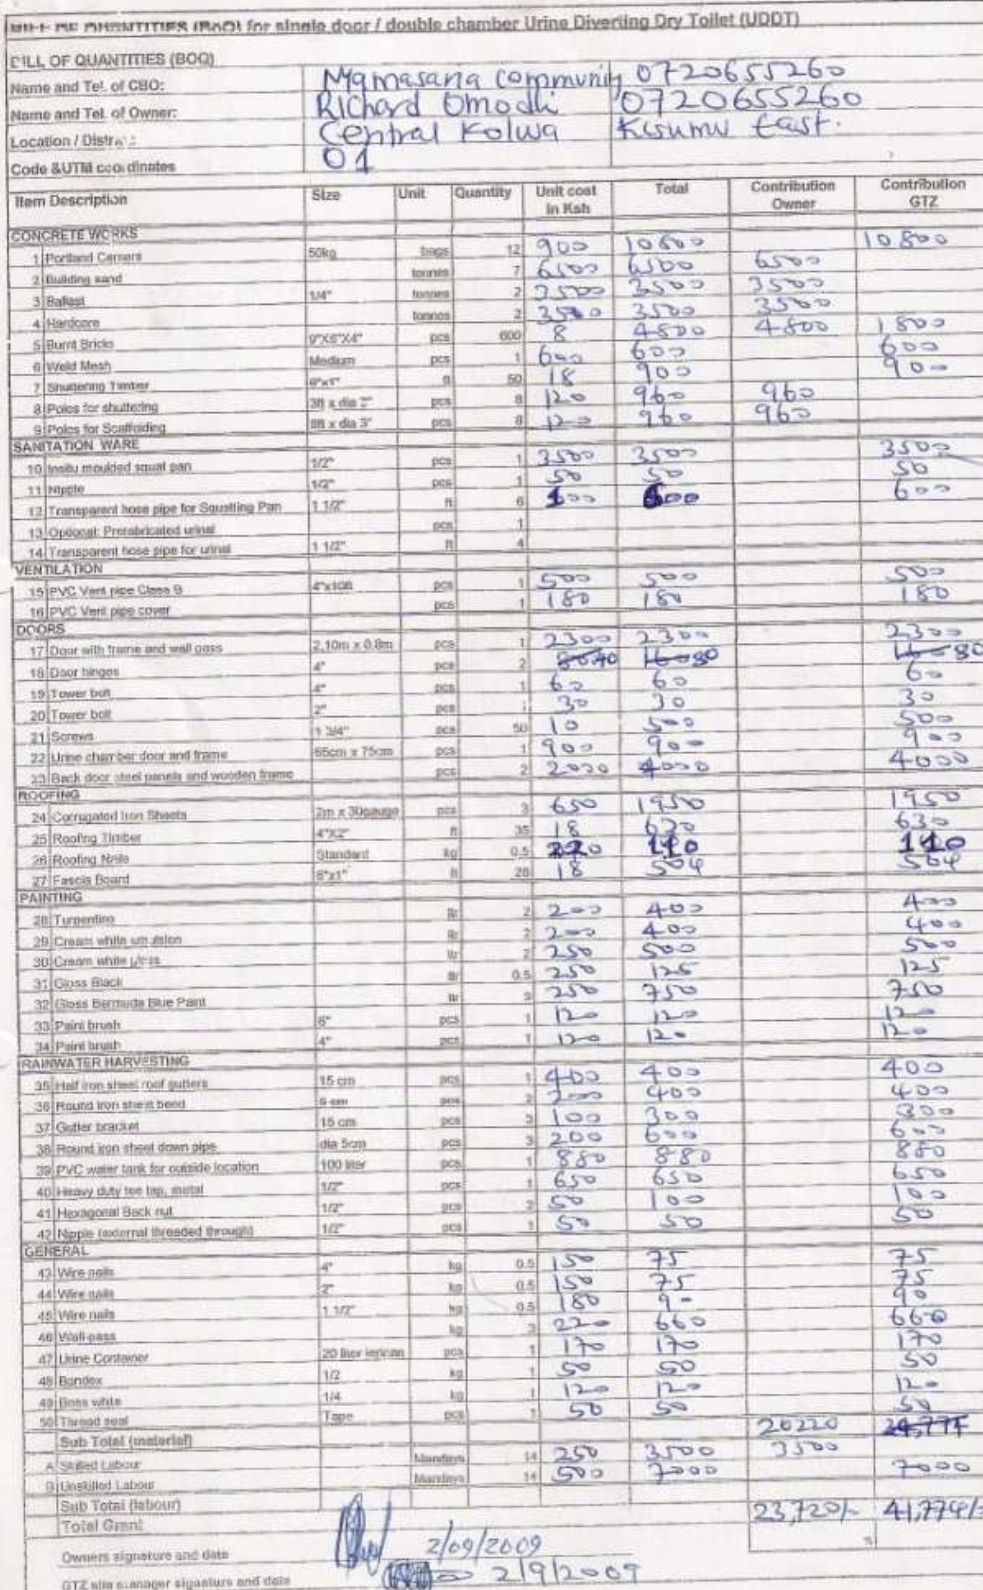 BILL OF QUANTITIES (BoQ) for single door / double chamber Urine Diverting Dry Toilet (UDDT)
BILL OF QUANTITIES (BOQ)
Name and Tel. of CBO: Mamasana Community 0720655260
Name and Tel. of Owner: Richard Omodhi 0720655260
Location / District: Central Kolwa Kisumu East.
Code & UTM coordinates 01
Item Description Size Unit Quantity Unit cost in Ksh Total Contribution Owner Contribution GTZ
CONCRETE WORKS
1 Portland Cement 50kg bags 12 900 10800 10800
2 Building sand tonnes 7 6500 6500 6500
3 Ballast 1/4" tonnes 2 3500 3500 3500
4 Hardcore tonnes 2 3500 3500 3500
5 Burnt Bricks 9"X6"X4" pcs 600 8 4800 4800 1800
6 Weld Mesh Medium pcs 1 600 600 600
7 Shuttering Timber 6"x1" ft 50 18 900 900
8 Poles for shuttering 3ft x dia 2" pcs 8 120 960 960
9 Poles for Scaffolding 8ft x dia 3" pcs 8 120 960 960
SANITATION WARE
10 Insitu moulded squat pan 1/2" pcs 1 3500 3500 3500
11 Nipple 1/2" pcs 1 50 50 50
12 Transparent hose pipe for Squatting Pan 1 1/2" ft 6 100 600 600
13 Optional: Prefabricated urinal pcs 1
14 Transparent hose pipe for urinal 1 1/2" ft 4
VENTILATION
15 PVC Vent pipe Class 9 4"x10ft pcs 1 500 500 500
16 PVC Vent pipe cover pcs 1 180 180 180
DOORS
17 Door with frame and wall pass 2.10m x 0.8m pcs 1 2300 2300 2300
18 Door hinges 4" pcs 2 40 80 80
19 Tower bolt 4" pcs 1 60 60 60
20 Tower bolt 2" pcs 1 30 30 30
21 Screws 1 3/4" pcs 50 10 500 500
22 Urine chamber door and frame 55cm x 75cm pcs 1 900 900 900
23 Back door steel panels and wooden frame pcs 2 2000 4000 4000
ROOFING
24 Corrugated Iron Sheets 2m x 30gauge pcs 3 650 1950 1950
25 Roofing Timber 4"X2" ft 35 18 630 630
26 Roofing Nails Standard kg 0.5 220 110 110
27 Fascia Board 6"x1" ft 28 18 504 504
PAINTING
28 Turpentine ltr 2 200 400 400
29 Cream white emulsion ltr 2 200 400 400
30 Cream white gloss ltr 2 250 500 500
31 Gloss Black ltr 0.5 250 125 125
32 Gloss Bermuda Blue Paint ltr 3 250 750 750
33 Paint brush 6" pcs 1 120 120 120
34 Paint brush 4" pcs 1 120 120 120
RAINWATER HARVESTING
35 Half iron sheet roof gutters 15 cm pcs 1 400 400 400
36 Round iron sheet bend 9 cm pcs 2 200 400 400
37 Gutter bracket 15 cm pcs 3 100 300 300
38 Round iron sheet down pipe dia 5cm pcs 3 200 600 600
39 PVC water tank for outside location 100 liter pcs 1 880 880 880
40 Heavy duty tee tap, metal 1/2" pcs 1 650 650 650
41 Hexagonal Back nut 1/2" pcs 2 50 100 100
42 Nipple (external threaded through) 1/2" pcs 1 50 50 50
GENERAL
43 Wire nails 4" kg 0.5 150 75 75
44 Wire nails 2" kg 0.5 150 75 75
45 Wire nails 1 1/2" kg 0.5 180 90 90
46 Wall-pass kg 3 220 660 660
47 Urine Container 20 liter jerrican pcs 1 170 170 170
48 Bondex 1/2 kg 1 50 50 50
49 Boss white 1/4 kg 1 120 120 120
50 Thread seal Tape pcs 1 50 50 50
Sub Total (material) 20220
A Skilled Labour Mandays 14 250 3500 3500
B Unskilled Labour Mandays 14 500 7000 7000
Sub Total (labour)
Total Grant 23,720/- 41,774/-
Owners signature and date 2/09/2009
GTZ site manager signature and date 2/9/2009